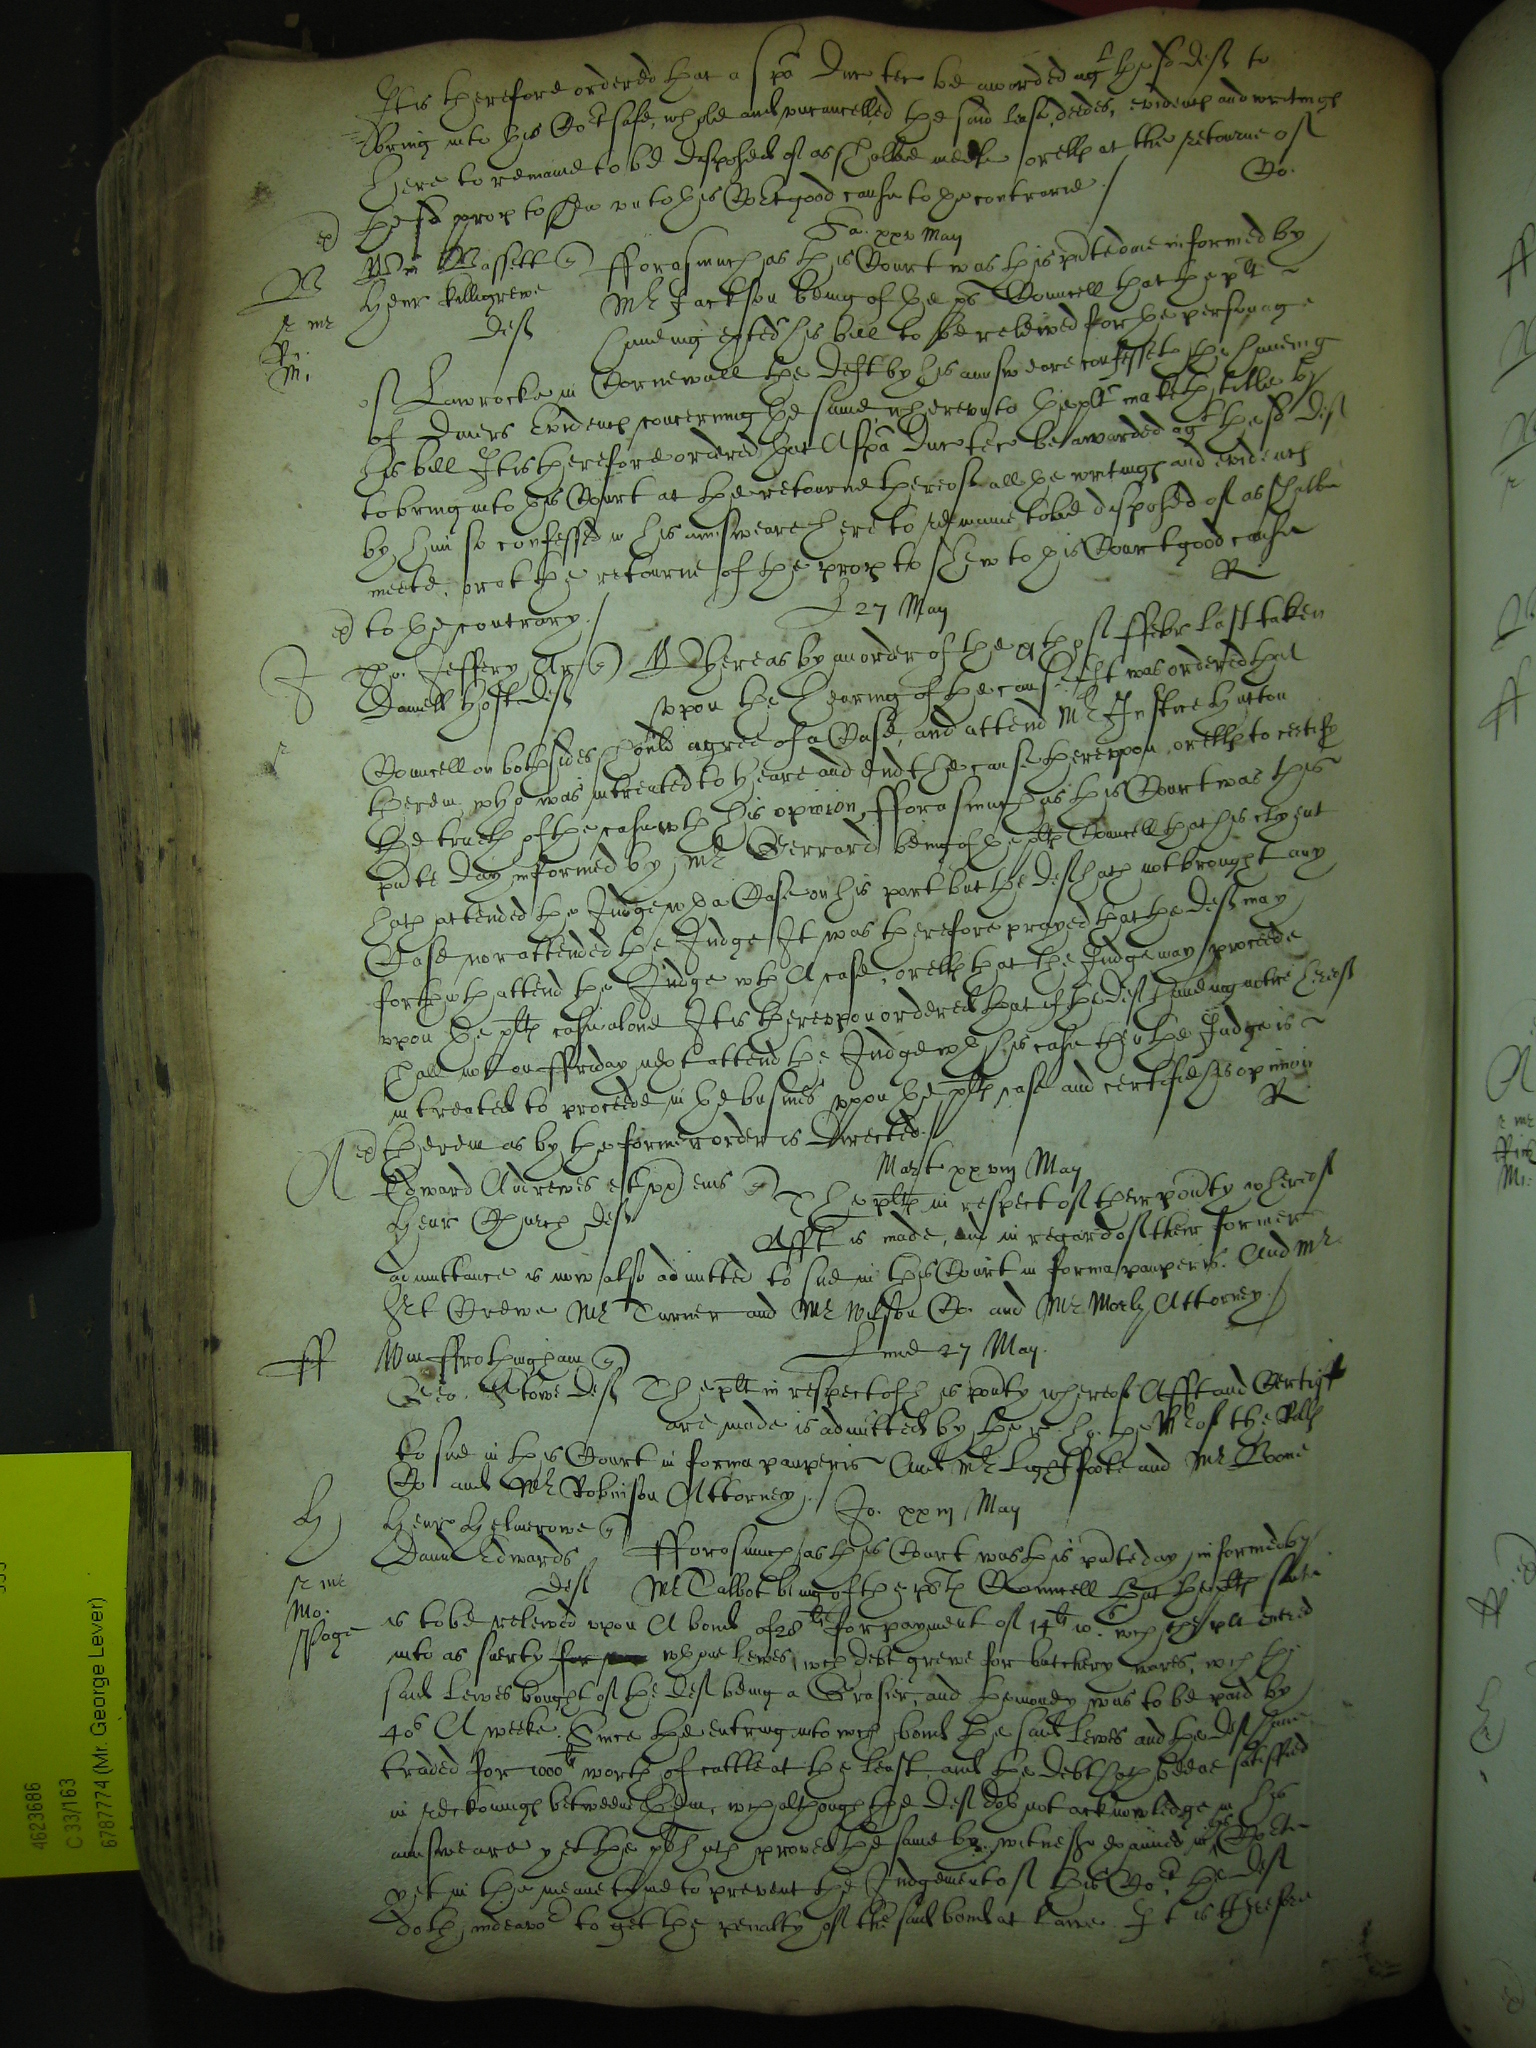 It is therefore ordered that a spa Duc tec be awarded agt the sd deft to
bring into this Cort safe, whole and uncancelled the said lease, deedes, evidence and writings
here to remaine to be disposed of as shalbe meete or ells at the retourne of
the sd proces to shew unto this Cort good cause to the contrarie /
Co.
ed
Sa. xxv May
M
Wm Bassett
Henr Killigrewe
deft
r mr
Ri:
Mi
fforasmuch as this Court was this pnte daie informed by
Mr Jackson being of the pts Councell that the plt
haveing exhted his bill to be releived for the personage
of Lawrocke in Cornewall the Deft by his answeare confesseth the haveing
of divers Evidences concerning the same wherevnto the plt maketh title by
his bill It is therefore ordered that A spa Duc tec be awarded agt the sd Deft
to bring into this Court at the retourne thereof all the writings and evidences
by him so confessed in his answeare here to remaine to be disposed of as shalbe
meete, or at the retourne of the proces to shew to this Court good cause
to the contrary /
R
ed
L 27 May
J
Tho. Jeffery Ar
Daniell Host deft
r
Whereas by an order of the 9th of ffebr last taken
upon the hearing of the cause It was ordered that
Councell on both sides should agree of a Case, and attend Mr Justice Hutton
therein who was intreated to heare and end the cause thereupon, or ells to certify
the truth of the case with his opinion, fforasmuch as this Court was this
pnte day informed by Mr Gerrard being of the plts Councell that his clyent
hath attended the Judge wth a Case on his part but the deft hath not brought any
Case nor attended the Judge It was therefore prayed that the Deft may
forthwth attend the Judge wth A case, or ells that the Judge may proceede
upon the plts case alone It is thereupon ordered that if the Deft haveing notice hereof
shall not on ffriday next attend the Judge wth his case then the Judge is
intreated to proceede in the busines upon the plts case and certifie his opinion
therein as by the former order is directed. //
R
ed
Mart xxviij May
A
Edward Andrewes et
Henr deft
The plts in respect of their povrty whereof
Afft is made, and in regard of their former
admittance is now also admitted to sue in this Court in forma pauperis. And Mr
Srt Crewe Mr Turner and Mr Wilson Co. and Mr Attorney. /
ff
Wm ffrothingham
Geo. Stowe deft
Lune 27 May.
The plt in respect of his povrty whereof Afft and Certif
are made is admitted by the r. ho. the Mr of the Rolls
to sue in this Court in forma pauperis And Mr Lightfoote and Mr Boone
Co and Mr Robinson Attorney. /
Jo. xxiij May
H
Henr
Daniell Edwards
deft
r mr
Mo.
Page
fforasmuch as this Court was this pnte day informed by
Mr Talbot being of the plts Councell that the plts suite
is to be releived upon A bond of 28li for payment of 14li 10s wch the plt entred
into as suerty wth one Lewes, wch debt grewe for butchery wares, wch the
said Lewes bought of the deft being a Grasier, and the money was to be paid by
40s A weeke. Since the entring into wch bond the said Lewes and the deft have
traded for 1000li worth of cattle at the least, and the debt hath beene satisfied
in reckonings betweene them, wch although the Deft doe not acknowledge in his
answeare yet the plt hath proved the same by witnesses exaied in this Cort
yet in the meane tyme to prevent the Judgement of this Cort the deft
doth indeavor to get the penalty of the said bond at Lawe. It is therefore
4623686
C 33/163
6787774 (Mr. George Lever)